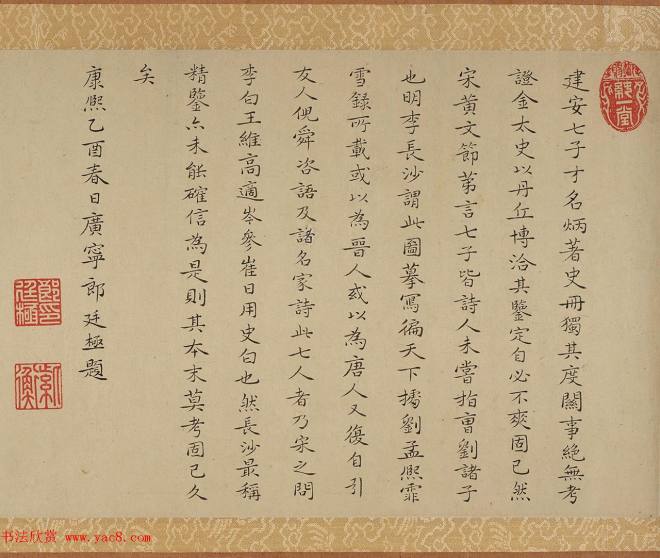 建安七子才名炳著史冊獨其度關事絕無考
證金太史以丹丘博洽其鑒定自必不爽固已然
宋黃文節第言七子皆詩人未嘗指曹劉諸子
也明李長沙謂此圖摹寫徧天下據劉孟熙霏
雪錄所載或以為晉人或以為唐人又復自引
友人倪舜咨語及諸名家詩此七人者乃宋之問
李白王維高適岑參崔日用史白也然長沙最稱
精鑒亦未能確信為是則其本末莫考固已久
矣
康熙乙酉春日廣寧郎廷極題
郎印廷極
紫衡
书法欣赏 www.yac8.com